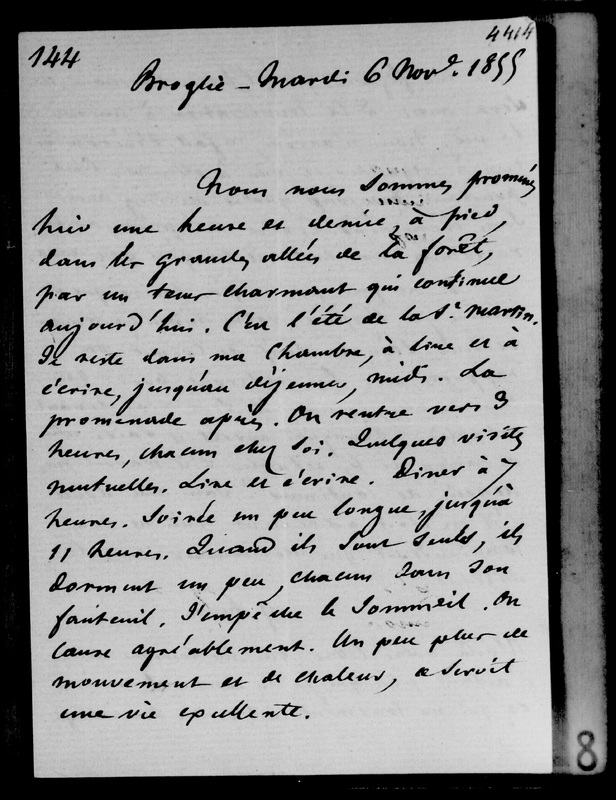 144
4414
Broglie - Mardi 6 Nov. 1855
Nous nous sommes promenés
hier une heure et demie, à pied,
dans les grandes allées de la forêt,
par un tems charmant qui continue
aujourd'hui. C'est l'été de la St. Martin.
Je reste dans ma Chambre, à lire et à
écrire, jusqu'au déjeuner, midi. La
promenade après. On rentre vers 3
heures, chacun chez soi. Quelques visites
mutuelles. Lire et écrire. Diner à 7
heures. Soirée un peu longue, jusqu'à
11 heures. Quand ils sont seuls, ils
dorment un peu, chacun dans son
fauteuil. J'empêche le sommeil. On
cause agréablement. Un peu plus de
mouvement et de chaleur, ce seroit
une vie excellente.
8